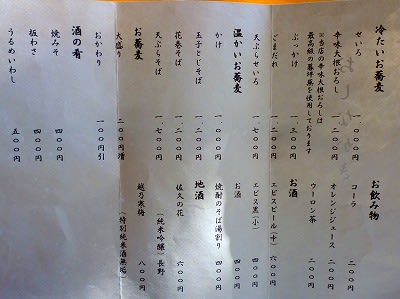 冷たいお蕎麦
せいろ 一、〇〇〇円
辛味大根おろし 一、二〇〇円
※当店の辛味大根おろしは
最高級の を使用しております
ぶっかけ 一、三〇〇円
ごまだれ 一、二〇〇円
天ぷらせいろ 一、七〇〇円
温かいお蕎麦
かけ 一、〇〇〇円
玉子とじそば 一、二〇〇円
花巻そば 一、二〇〇円
天ぷらそば 一、七〇〇円
お蕎麦
大盛り 二〇〇円増
おかわり 一〇〇円引
酒の肴
焼みそ 四〇〇円
板わさ 四〇〇円
うるめいわし 五〇〇円
お飲み物
コーラ 二〇〇円
オレンジジュース 二〇〇円
ウーロン茶 二〇〇円
お酒
エビスビール(中) 六〇〇円
エビス黒(小) 四〇〇円
お酒 四〇〇円
焼酎のそば湯割り 四〇〇円
地酒
佐久の花 六〇〇円
(純米吟醸)長野
越乃寒梅 八〇〇円
(特別純米酒無垢)